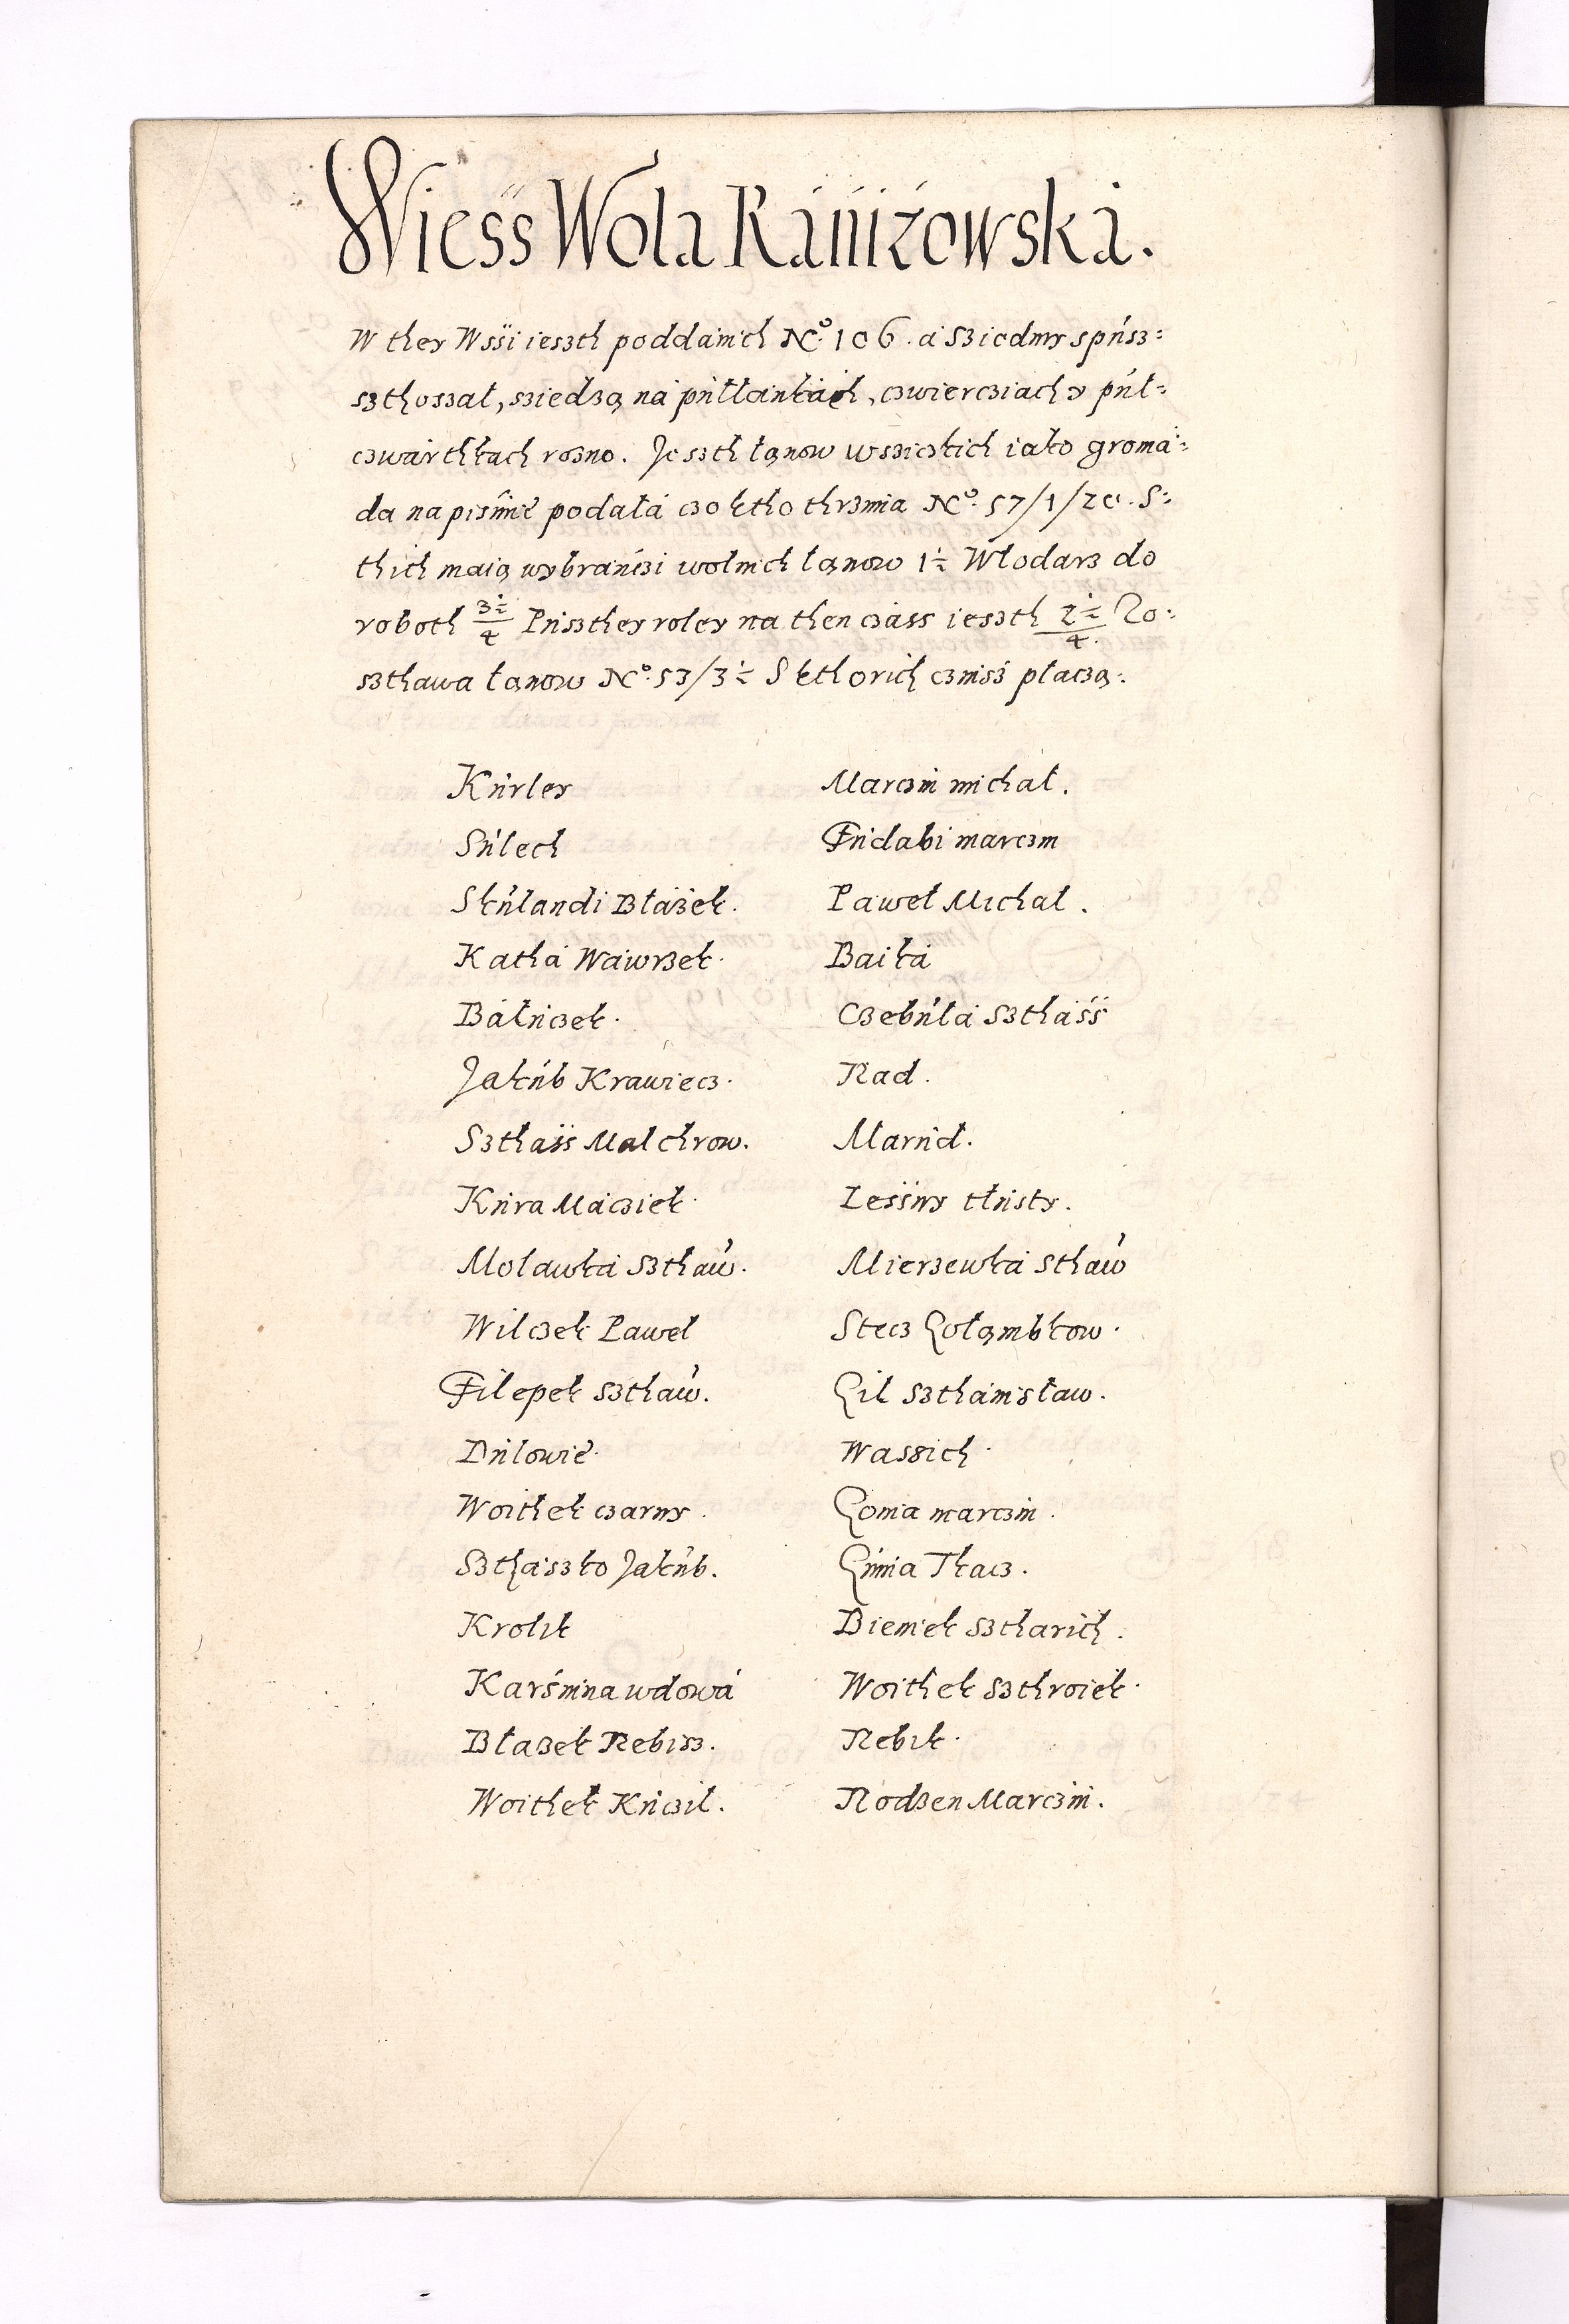 Wieśś Wola Rániżowska.
W they Wśśi ieszth poddanich No. 106. a sziedmy spusz=
szthoszał, sziedzą ná pułłankách, czwierciach y puł=
czwárthkach rozno. Jeszth łanow wszickich iako gromá=
da na piśmie podałá czo ktho thrzima No. 57/1/20. S=
thich maią wybránczi wolnich łanow 1½ Włodarz do
roboth 3½/4 Pusthey roley na then czáss ieszth 2½/4 Zo=
szthawa łanow No. 53/3½ S kthorich czinsz płaczą.
Kurley
Sulech
Skulandi Błażek.
Kathá Wawrzek.
Báłuczek.
Jakub Krawiecz.
Szthaśś Malchrow.
Kura Máciek.
Molawka Szthaw.
Wilczek Paweł
Filepek Szthaw.
Dulowie.
Woithek czarny.
Szthászko Jakub.
Krolik
Karśnina wdowá
Błazek Rebisz.
Woithek Kucził.
Marczin michał.
Fudabi marczin
Paweł Michal.
Baiká
Czebulá Szthaśś
Rad.
Marud.
Leśśny tłusty.
Mierzewká Sthaw
Stecz Gołąmbkow.
Gil Szthánisław.
Wassich.
Gonia marczin.
Gunia Tkacz.
Bieniek Sztharich.
Woithek Szthroiek.
Rebik.
Rodzen Marczin.